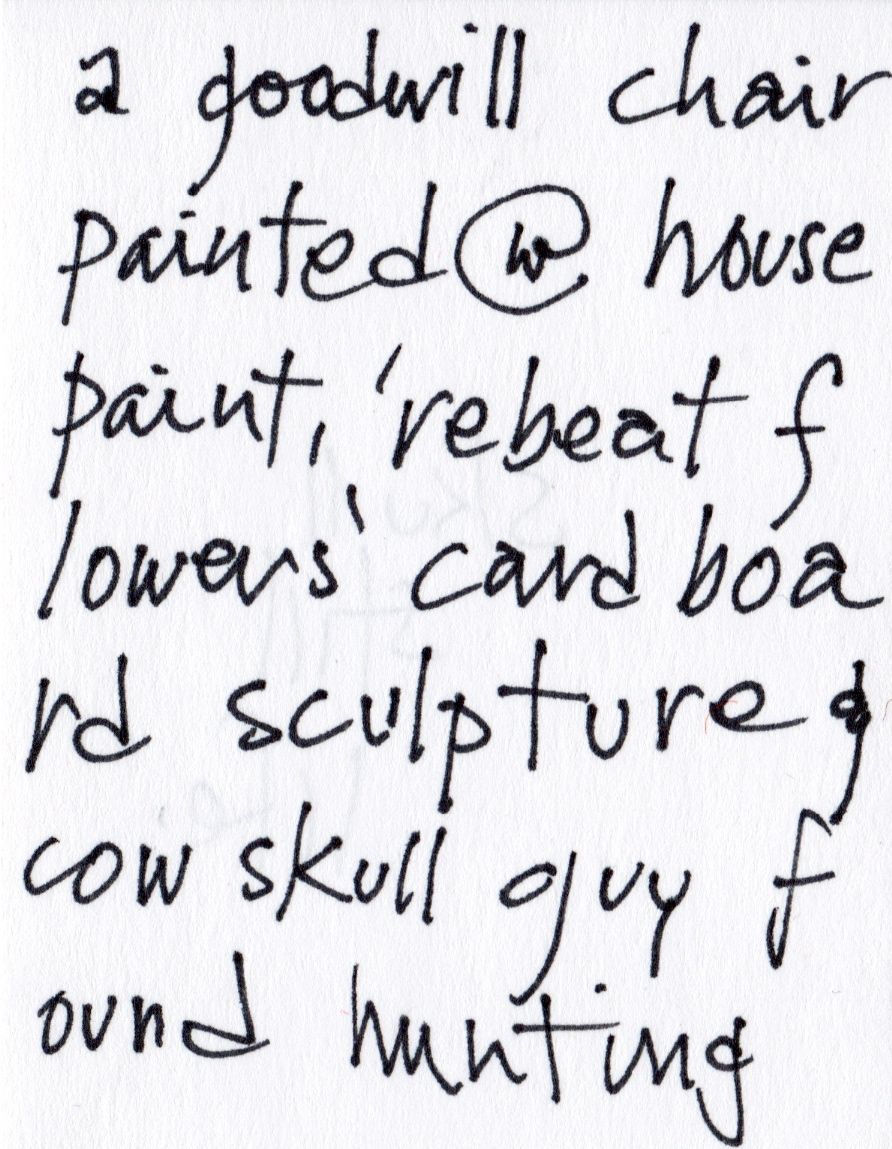 a goodwill chair
painted ⓦ house
paint, 'rebeat f
lowers' card boa
rd sculpture &
cow skull guy f
ound hunting